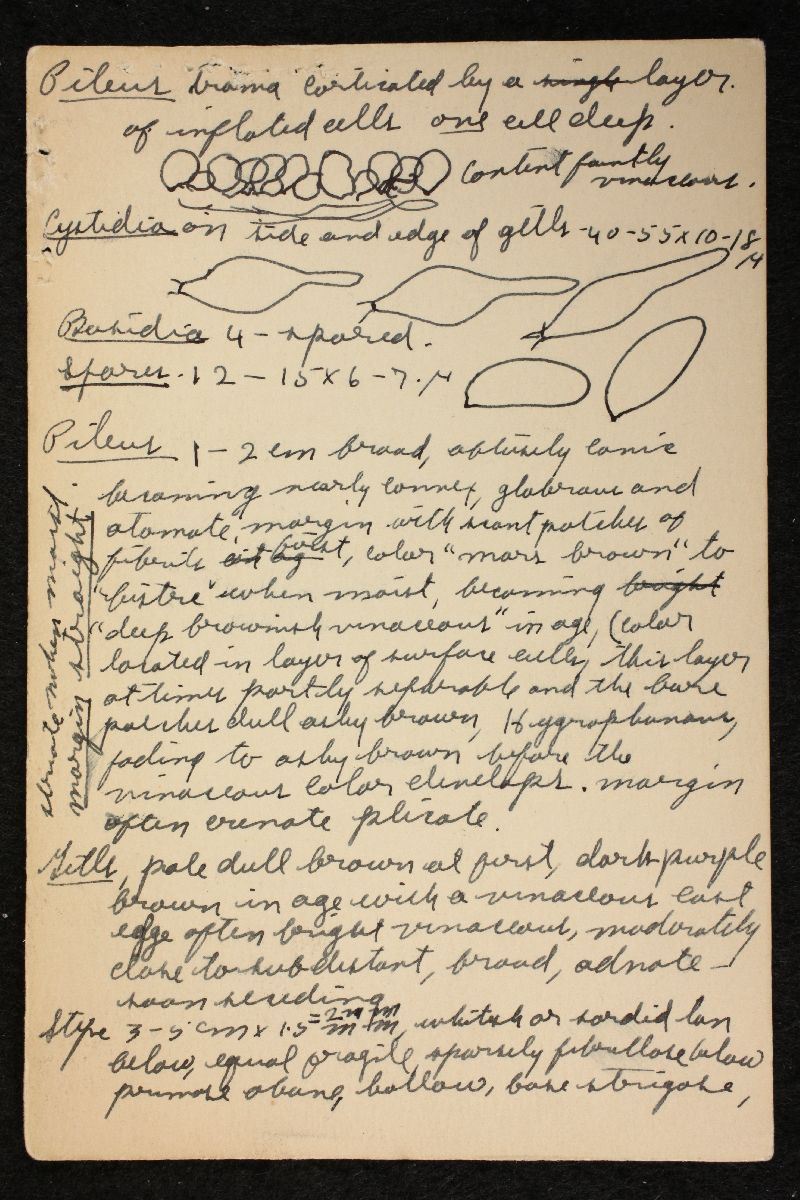 Pileus trama corticated by a single layer.
of inflated cells one cell deep.
Content faintly
vinaceous.
Cystidia on side and edge of gills - 40-55 x 10-18
µ
Basidia 4-spored.
Spores. 12-15 x 6-7. µ
Pileus 1-2 cm broad, obtusely conic
becoming nearly convex, glabrous and
atomate, margin with scant patches of
fibrils at first, color "mars brown" to
"bistre" when moist, becoming bright
"deep brownish vinaceous" in age, (color
located in layer of surface cells, this layer
at times partly separable and the bare
patches dull ashy brown, Hygrophanous,
fading to ashy brown before the
vinaceous color develops. margin
often crenate plicate.
striate when moist.
margin straight
Gills, pale dull brown at first, dark purple
brown in age with a vinaceous cast
edge often bright vinaceous, moderately
close to subdistant, broad, adnate -
soon seceding
Stipe 3-5 cm x 1.5-2 mm, whitish or sordid tan
below, equal fragile, sparsely fibrillose below
pruinose above, hollow, base strigose,